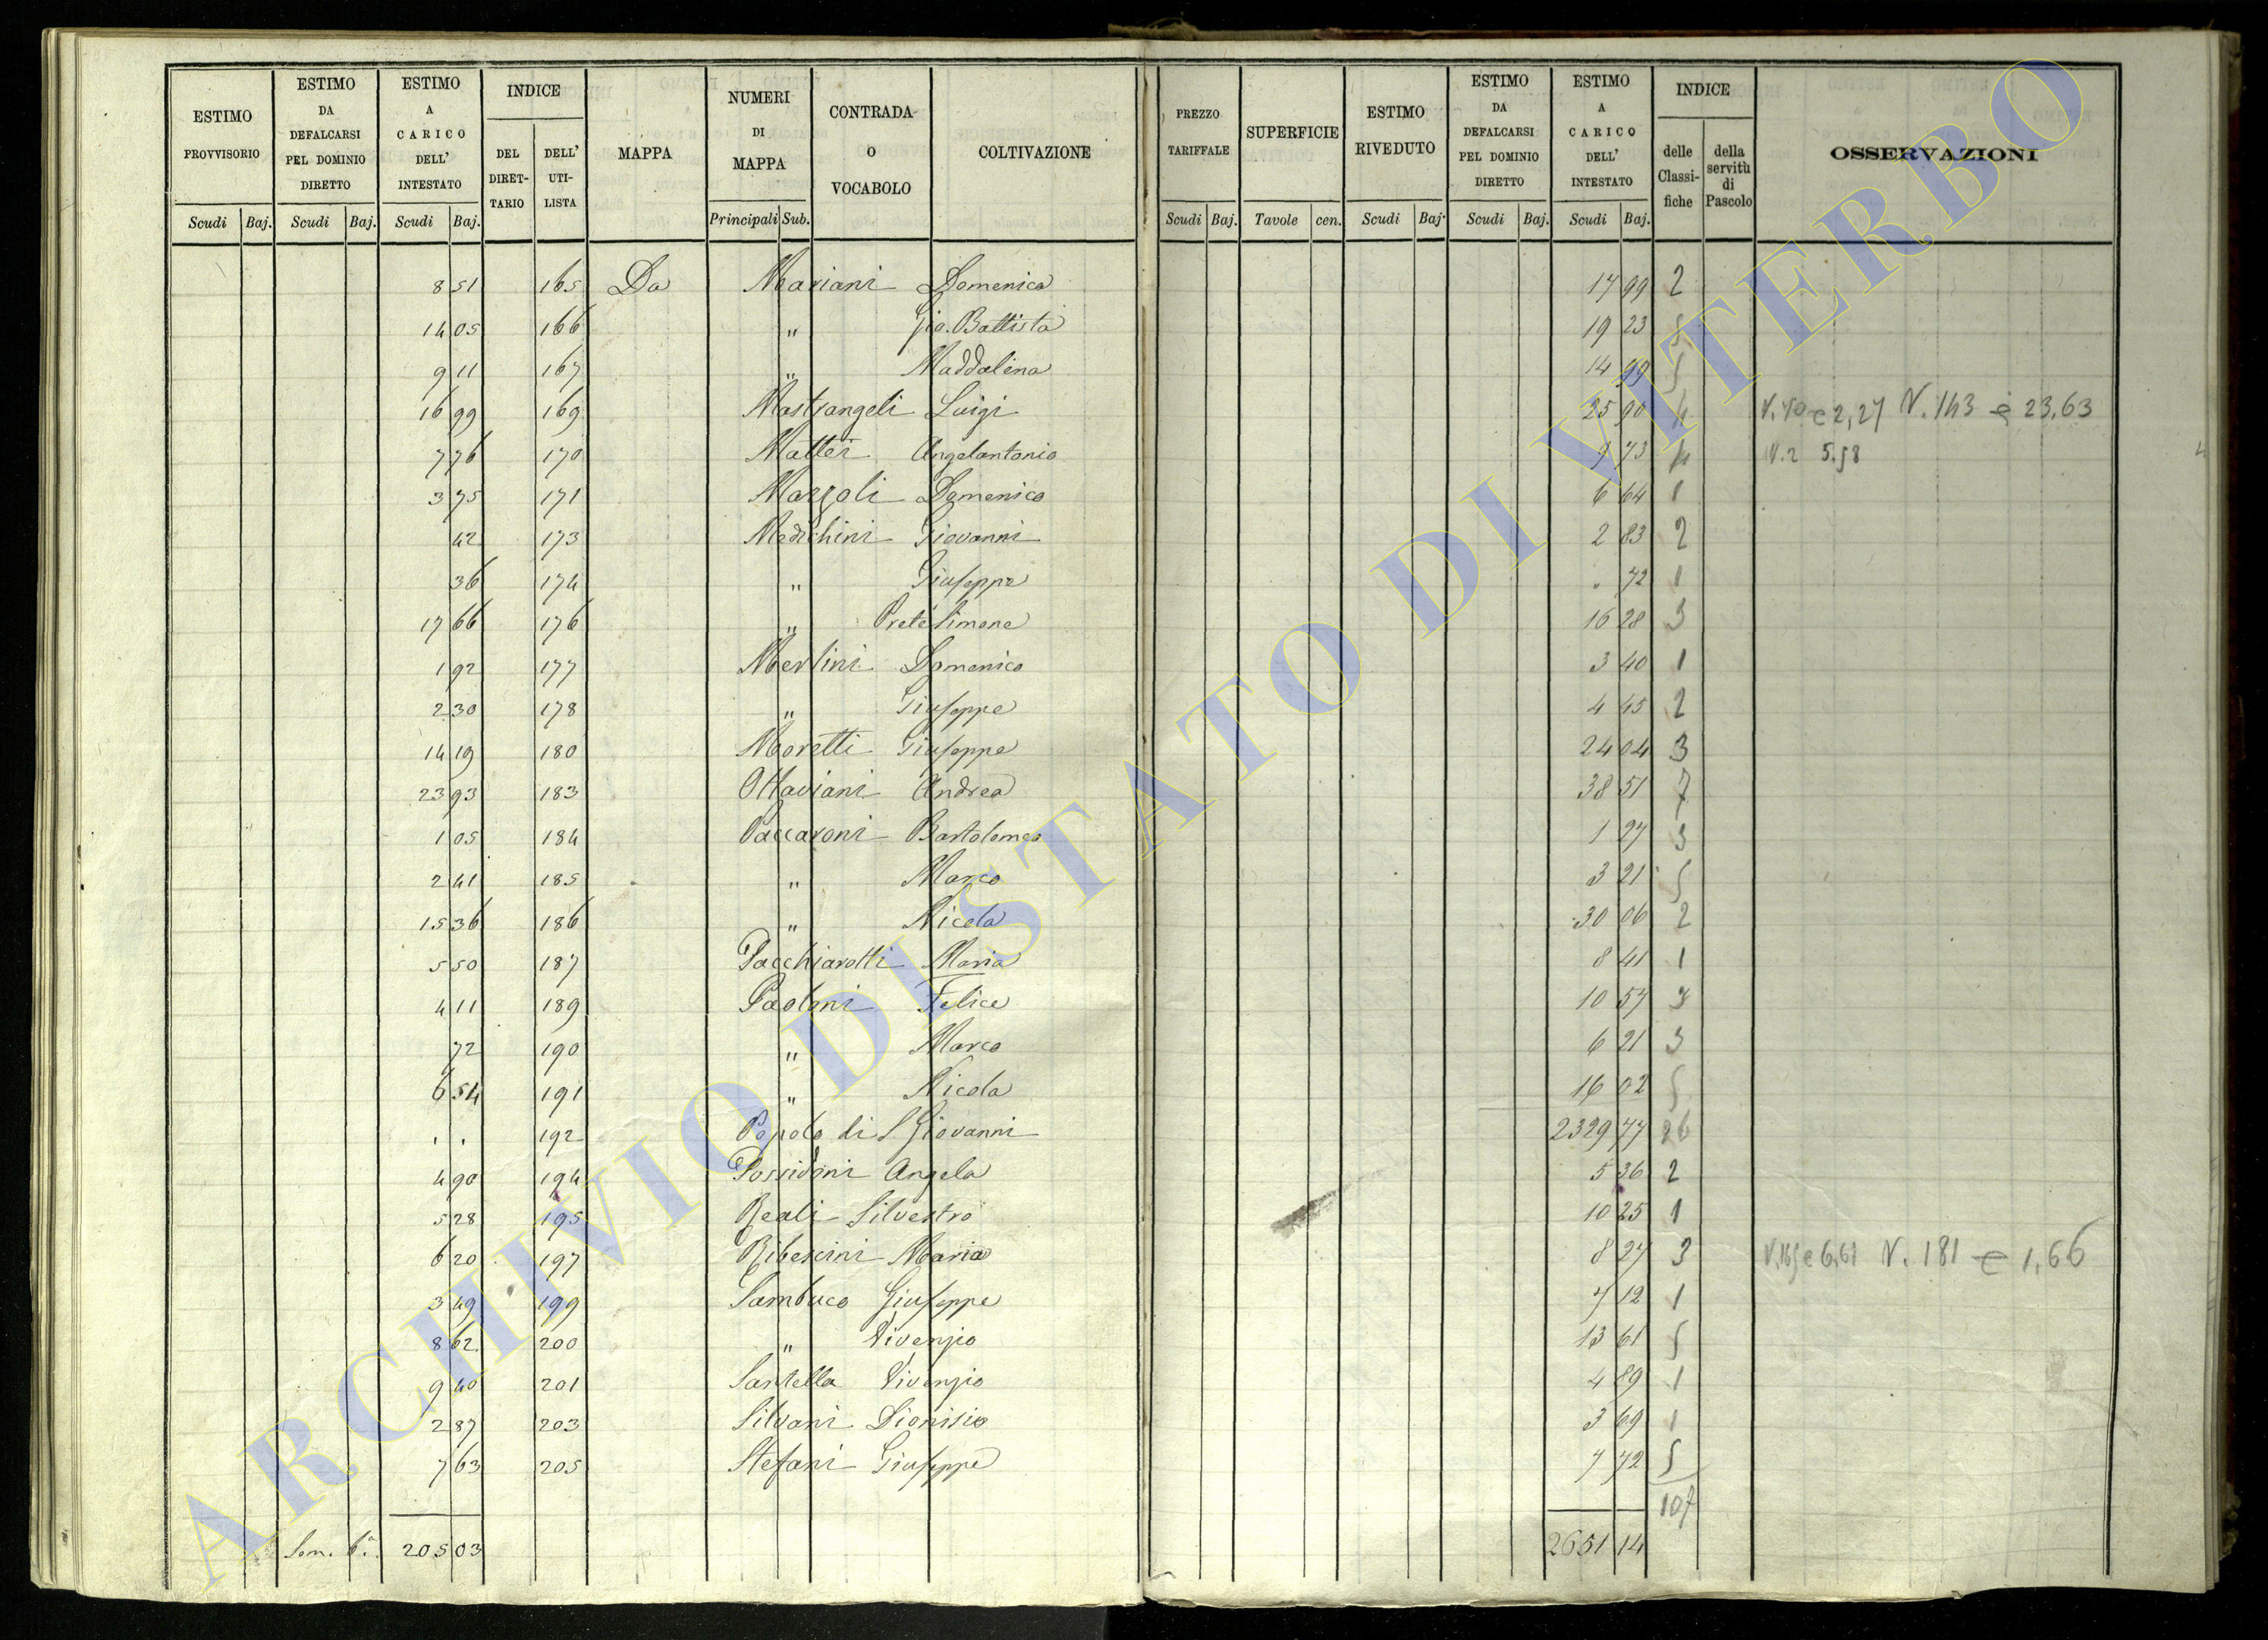 ESTIMO PROVVISORIO | ESTIMO DA DEFALCARSI PEL DOMINIO DIRETTO | ESTIMO A CARICO DELL' INTESTATO | INDICE | MAPPA | NUMERI DI MAPPA | CONTRADA O VOCABOLO | COLTIVAZIONE | PREZZO TARIFFALE | SUPERFICIE | ESTIMO RIVEDUTO | ESTIMO DA DEFALCARSI PEL DOMINIO DIRETTO | ESTIMO A CARICO DELL' INTESTATO | INDICE | OSSERVAZIONI
DEL DIRET-TARIO | DELL' UTI-LISTA | delle Classi-fiche | della servitù di Pascolo
Scudi | Baj. | Scudi | Baj. | Scudi | Baj. | Principali | Sub. | Scudi | Baj. | Tavole | cen. | Scudi | Baj. | Scudi | Baj. | Scudi | Baj.
8 51 165 Da Mariani Domenica 17 99 2
14 05 166 " Gio. Battista 19 23 5
9 11 167 " Maddalena 14 99 5
16 99 169 Mastrangeli Luigi 25 90 4 2,27 N. 143 e 23,63
7 76 170 Mattei Angelantonio 9 73 4 N. 2 5.58
3 75 171 Marzoli Domenico 6 64 1
42 173 Medichini Giovanni 2 83 2
36 174 " Giuseppe . 72 1
17 66 176 " Prete Simone 16 28 3
1 92 177 Merlini Domenico 3 40 1
2 30 178 " Giuseppe 4 45 2
14 19 180 Moretti Giuseppe 24 04 3
23 93 183 Ottaviani Andrea 38 51 7
1 05 184 Paccaroni Bartolomeo 1 27 3
2 41 185 " Marco 3 21 5
15 36 186 " Nicola 30 06 2
5 50 187 Pacchiarotti Maria 8 41 1
4 11 189 Paoloni Felice 10 57 3
72 190 " Marco 6 21 3
6 54 191 " Nicola 16 02 5
. . 192 Popolo di S. Giovanni 2329 77 26
4 90 194 Possidoni Angela 5 36 2
5 28 195 Reali Silvestro 10 25 1
6 20 197 Ribescini Maria 8 27 3 N. 165 e 6,61 N. 181 e 1,66
3 49 199 Sambuco Giuseppe 7 12 1
8 62 200 " Vivenzio 13 61 5
9 40 201 Santella Vivenzio 4 89 1
2 87 203 Silvani Dionisio 3 69 1
7 63 205 Stefani Giuseppe 7 72 5
107
Som. 6.a 205 03 2651 14
ARCHIVIO DI STATO DI VITERBO